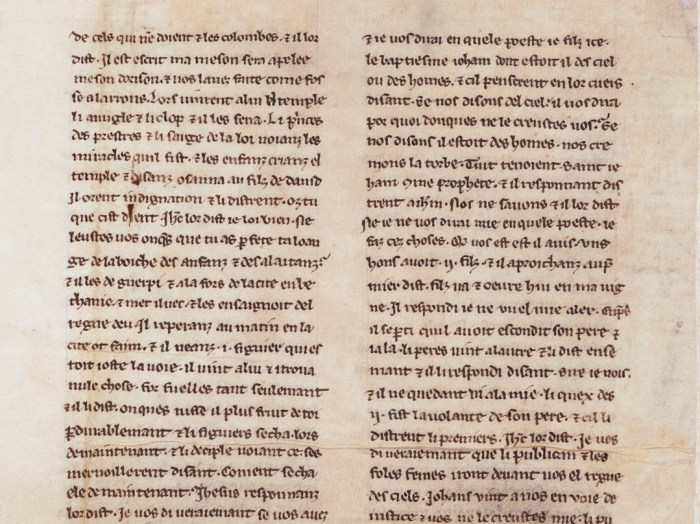 de cels qui ñe doient ⁊ les colombes. ⁊ il lor
dist. Il est escrit ma meson sera apelee
meson dorison. ⁊ vos lavez faite come fos
se a larrons. Lors vindrent a lui temple
li avugle ⁊ li clop ⁊ il les sena. Li pͥnces
des prestres ⁊ li saige de la loi voianz les
miracles quil fist. ⁊ les enfanz crianz el
temple ⁊ disanz osanna au filz de david
Il orent indignation ⁊ li distrent. oz tu
que cist dient Ihc̄ lor dist ie loi bien. Ne
leustes vos onq̄s que tu as ꝑfete ta loan
ge de la boiche des anfanz ⁊ des alaitanz.
⁊ il les de guerpi ⁊ ala fors de la cite en be
thanie. ⁊ met iluec. ⁊ les ensaignoit del
regne deu. Il reperanz au matin en la
cite ot faim. ⁊ il veanz .i. figuier qui es
toit ioste la voie. il vint a lui ⁊ i trova
nule chose. for fuelles tant seulemant
⁊ il li dist. onques naisse il plus fruit de toi
ꝑdurablemant ⁊ li figuiers secha. lors
de maintenant. ⁊ li deciple voiant ce. se
mervoillerent disant. Coment secha
ele de maintenant. Ihesus responnanz
lor dist. Je vos di veraiemant se vos avez
⁊ ie vos dirai en quele poeste ie faz ice.
le baptesme ioham dont estoit il des ciel
ou des homes. ⁊ cil penserent en lor cuers
disant. Se nos disons del ciel. il vos dira
por quoi donques ne le creustes vos. Se
nos disons il estoit des homes. nos cre
mons la torbe. Tuit tenoient saint ie
han 9me prophete. ⁊ il responnant dis
trent a ihū. Nos ne savons ⁊ il lor dist
Ne ie ne vos dirai mie en quele poeste. ie
faz cez choses. vos est il avis. uns
hons avoit .ij. filz. ⁊ il aproichanz au p̄
mier. dist. filz va ⁊ oevre hui en ma vig
ne. Il respondi ie ne vuel mie aler.
il se ꝑti quil avoit escondit son pere ⁊
i ala. li peres vint a lautre ⁊ li dist ense
mant ⁊ il li respondi disant. sire ie vois.
⁊ il ne quedant i ala mie. li quex des
.ij. fist la volante de son pere. ⁊ cil li
distrent li premiers. Ihc̄ lor dist. Je vos
di veraiemant que li publican ⁊ les
foles femes iront devant vos el regne
des ciels. Johans vint a vos en voie de
iustice ⁊ vos ne le creustes mie. li pu